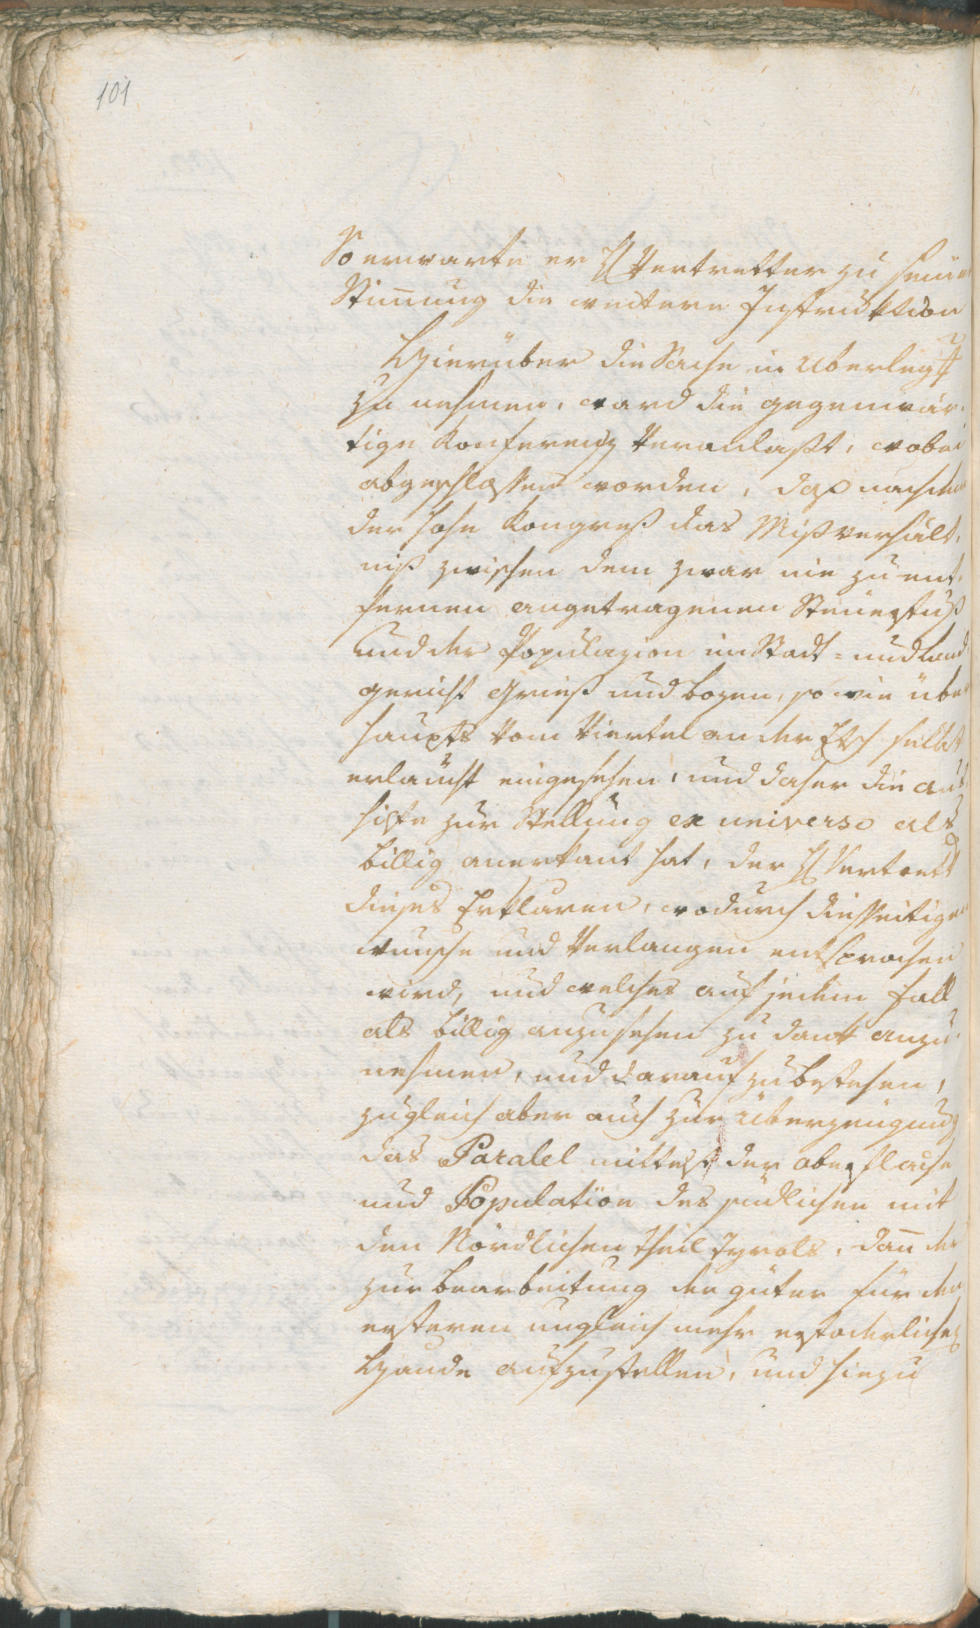 101
So erwarte er H Vertretter zu seiner
Stimung die weitere Instrucktion
Hierüber die Sache in Uberlegg
zu nehmen, ward die gegenwär-
tige Konferenz veranlaßt, wobei
abgeschlossen worden, daß nachdem
der hohe Kongreß das Mißverhält-
niß zwischen dem zwar nie zu ent-
fernen angetragenen Steuerfuß
und der Populazion im Stadt- und Land
gericht Grieß und Bozen, so wie über
haupts vom Viertel an der Etsch selbst
erlaucht eingesehen, und daher die
zur Stellung ex universo als
billig anerkant hat, der H Vertrett
dieses Erklären, wodurch diesseitigen
wunsche und Verlangen entsprochen
wird, und welches auf jedem fall
als billig anzusehen zu dank anzu-
nehmen, und darauf zu bestehen,
zugleich aber auch zur Uberzeugung
das Paralel mittelst der oberflache
und Population des südlichen mit
den Nördlichen theil Tyrols, dan der
zur bearbeitung der güter für den
ersteren ungleich mehr erforderlichen
Hände aufzustellen, und hiezu